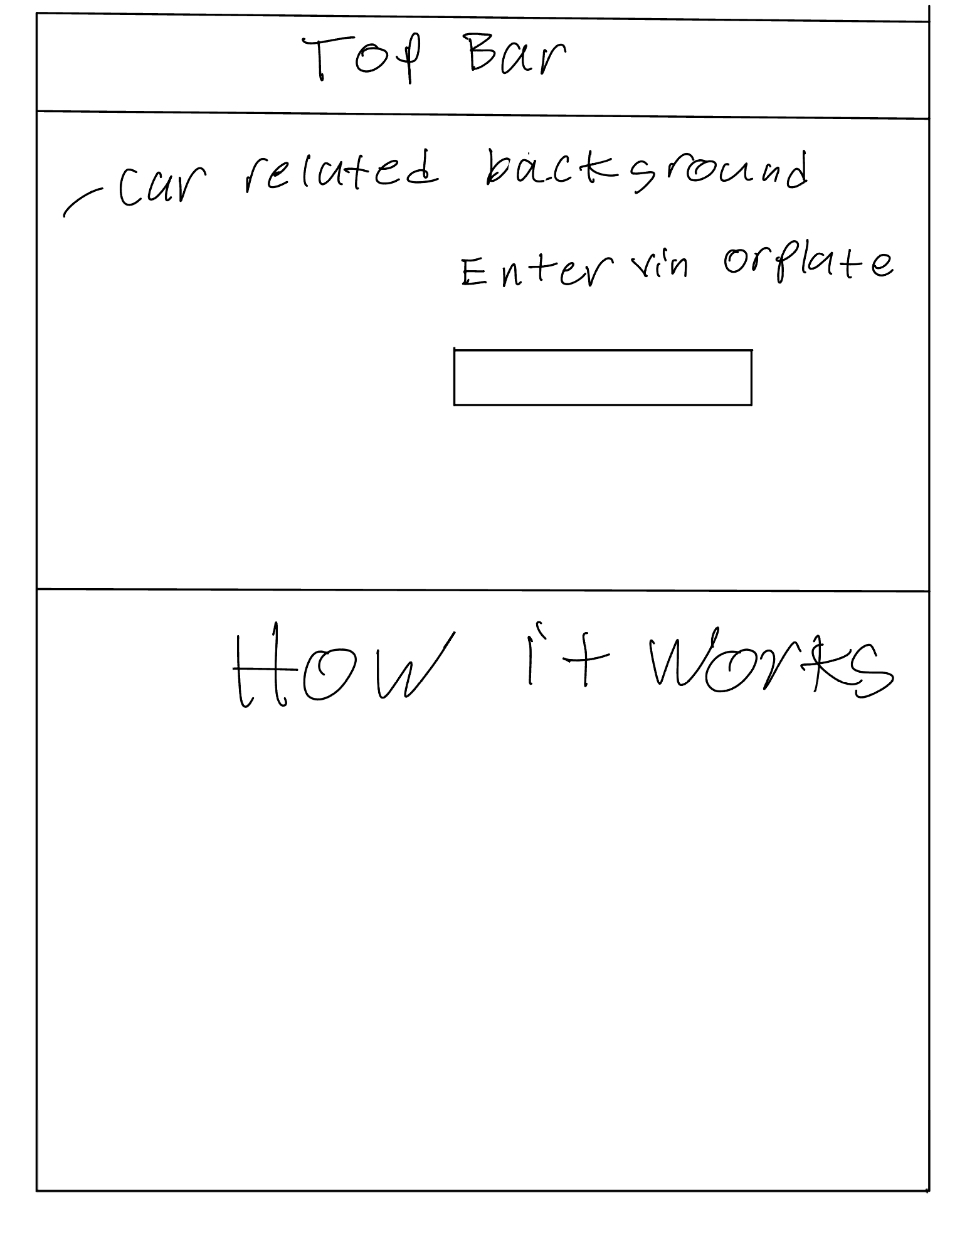 Top Bar
car related background
Enter vin or plate
How it works